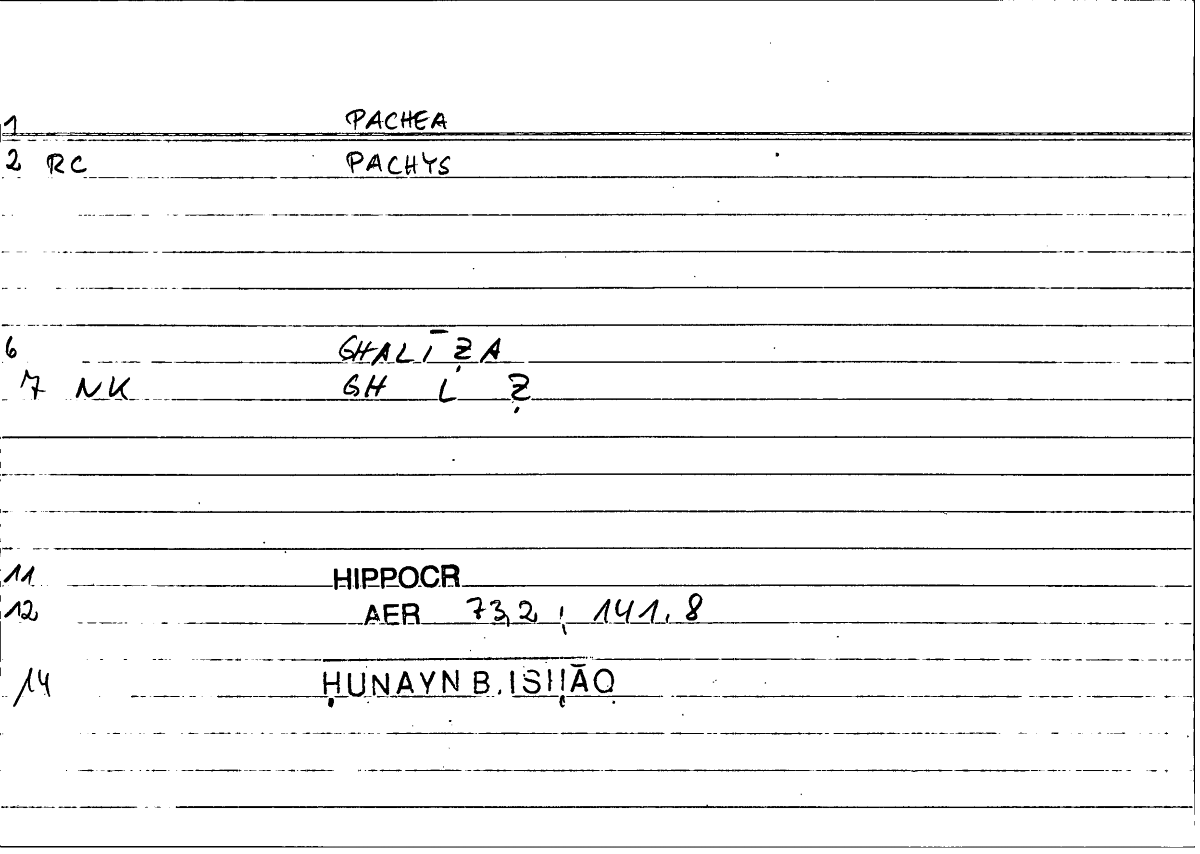 1 PACHEA
2 RC PACHYS
6 GHALĪẒA
7 NK GH L Ẓ
11 HIPPOCR
12 AER 73,2 ; 141,8
14 ḤUNAYN B. ISḤĀQ